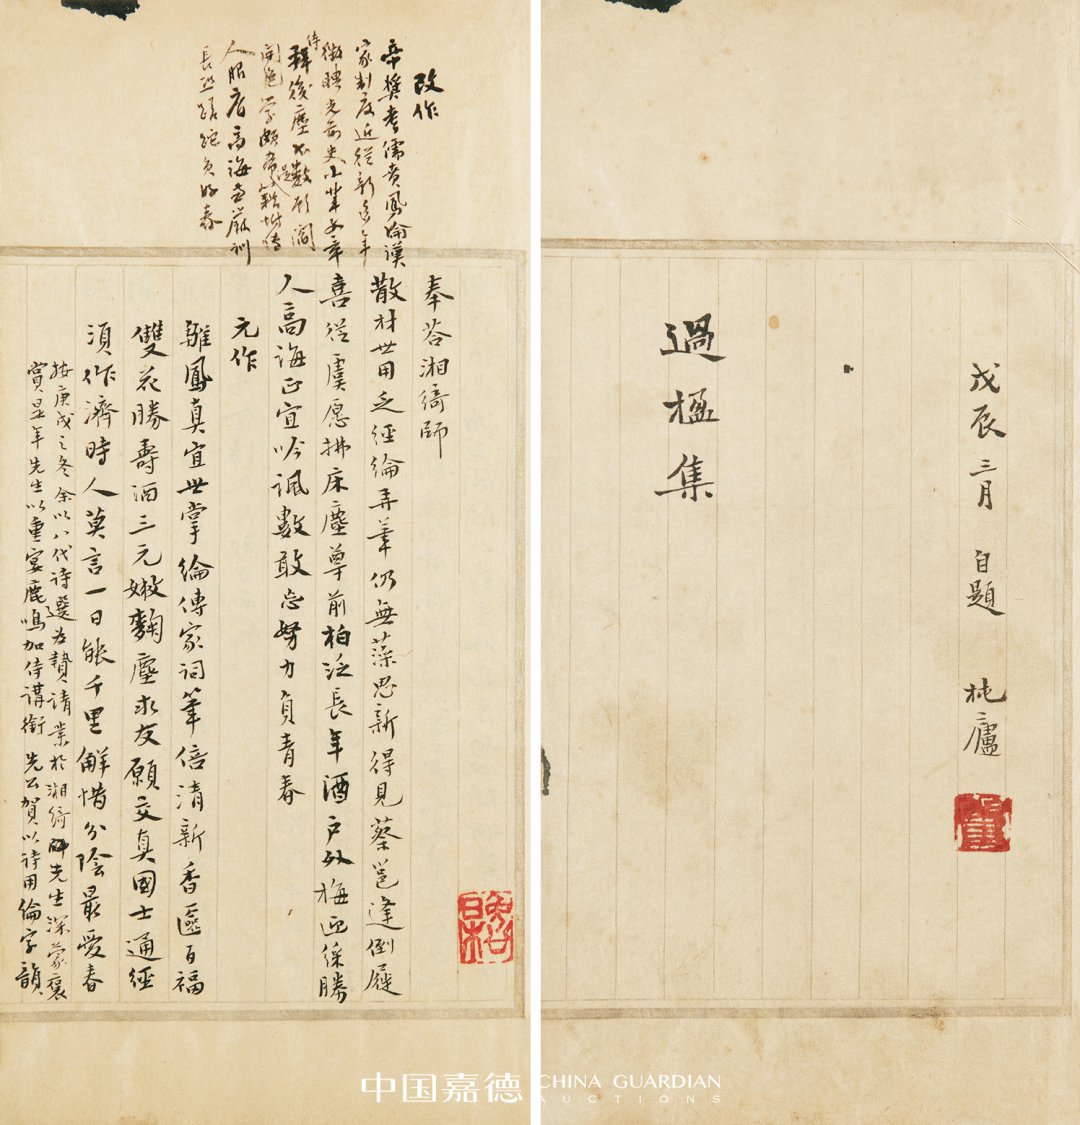 戊辰三月 自題 杶廬
過楹集
改作
帝獎耆儒賁鳳綸漢
家制度近從新多年
徵聘光前史小輩文章
侍拜後塵不數形闈
開絕學頗
人服官高誨兼嚴訓
長恐蹉跎負好春
奉荅湘綺師
散材世用乏經綸弄筆仍無藻思新得見蔡邕逢倒屣
喜從虞愿拂床塵尊前柏泛長年酒戶外梅迎綵勝
人高誨正宜吟諷數敢忘努力負青春
元作
雛鳳真宜世掌綸傳家詞筆倍清新香匳百福
雙花勝壽酒三元嫩麴塵求友願交真國士通經
須作濟時人莫言一日能千里解惜分陰最愛春
按庚戌之冬余以八代詩選為贄請業於湘綺師先生深蒙褒
賞是年先生以重宴鹿鳴加侍講銜先公賀以詩用倫字韻
中国嘉德
CHINA GUARDIAN
AUCTIONS